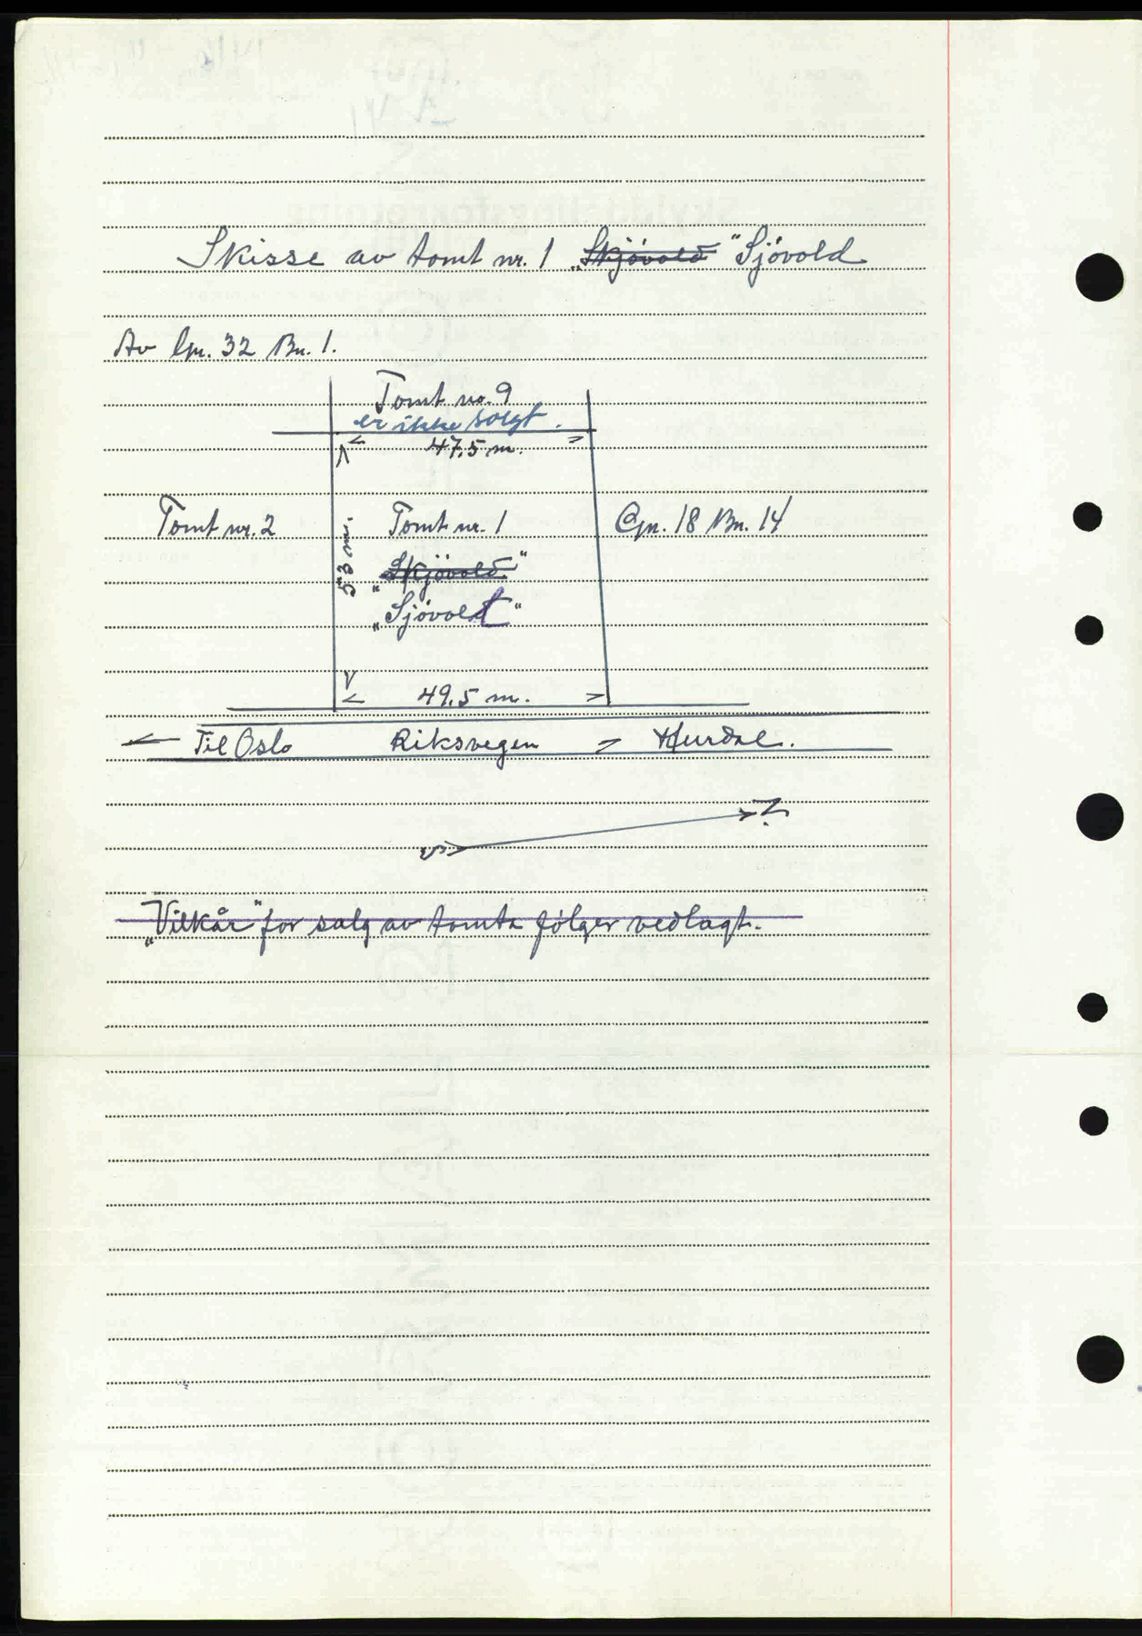 Skisse av tomt nr. 1 „Skjøvold" "Sjøvold
Av Gn. 32 Bn. 1.
Tomt no. 9
er ikke solgt.
47,5 m.
Tomt nr. 2
53 m.
Tomt nr. 1
Gn. 18 Bn. 14
„Skjøvold"
„Sjøvolt"
49,5 m.
Til Oslo Riksvegen Hurdal.
N.
S
„Vilkår" for salg av tomta følger vedlagt.